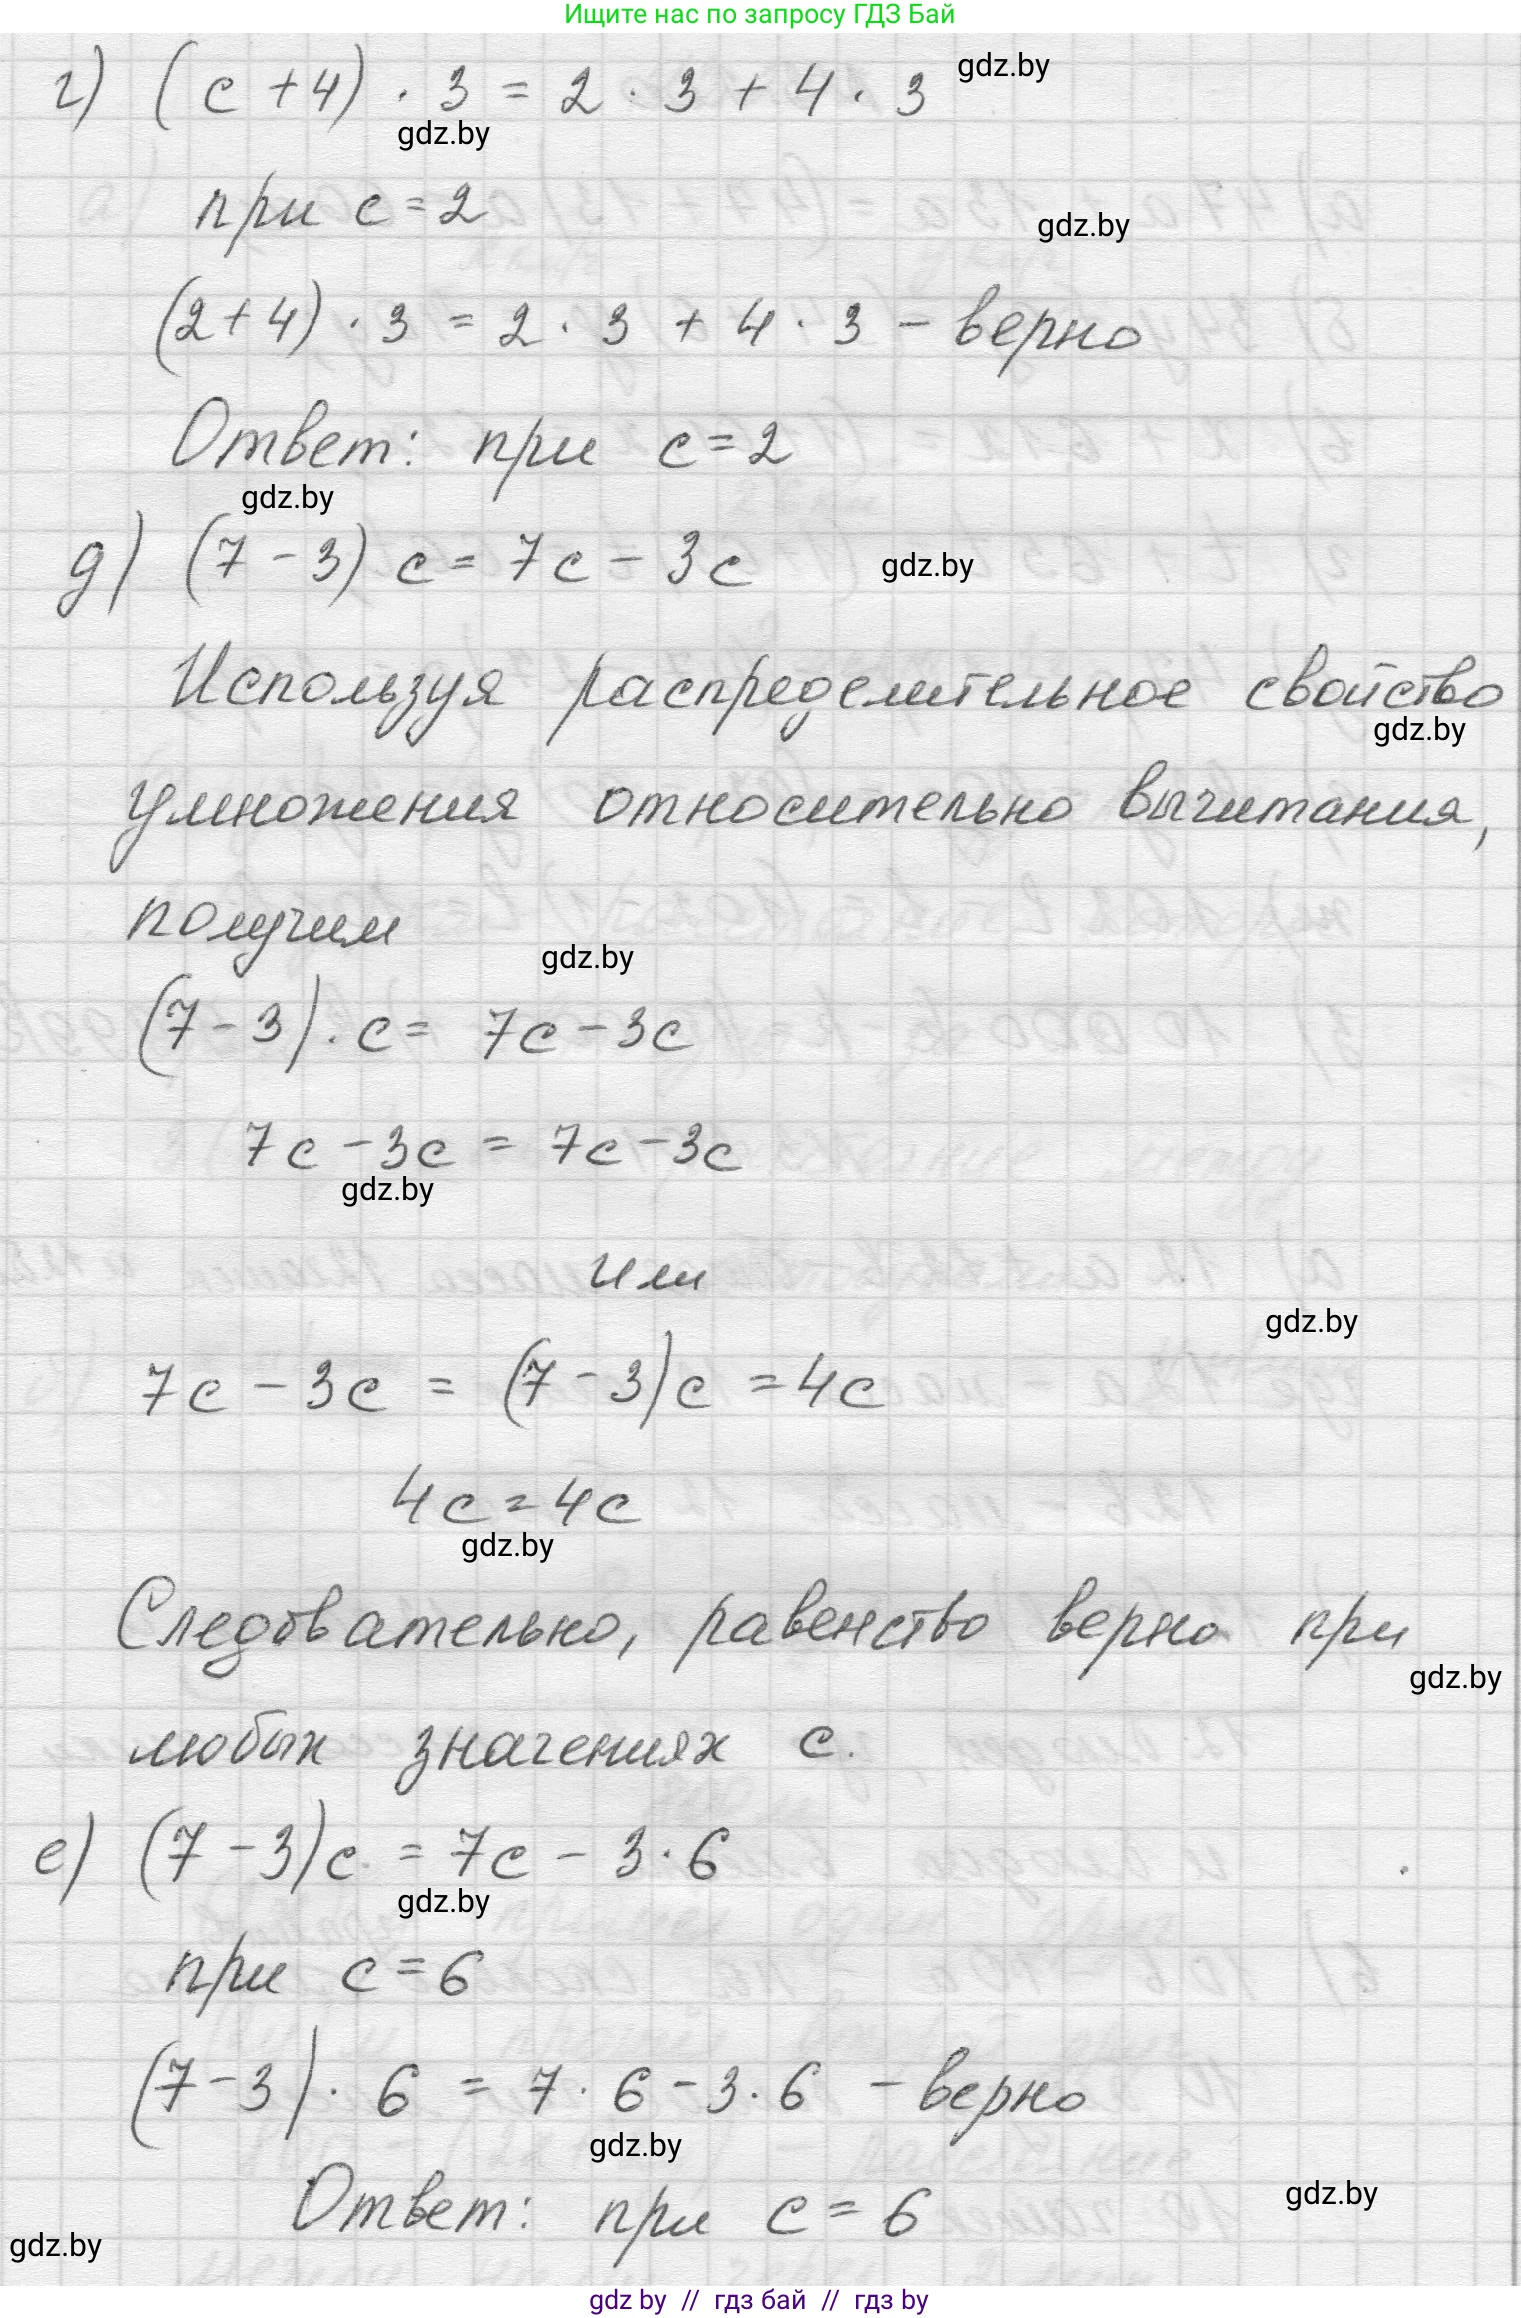 Ищите нас по запросу ГДЗ Бай
г) (c + 4) · 3 = 2 · 3 + 4 · 3 gdz.by
gdz.by
при c = 2
gdz.by
(2 + 4) · 3 = 2 · 3 + 4 · 3 – верно
Ответ: при c = 2
gdz.by
д) (7 – 3) c = 7c – 3c gdz.by
Используя распределительное свойство
gdz.by
умножения относительно вычитания,
получим
gdz.by
(7 – 3) · c = 7c – 3c
7c – 3c = 7c – 3c
gdz.by
или
gdz.by
7c – 3c = (7 – 3)c = 4c
4c = 4c
gdz.by
Следовательно, равенство верно при
gdz.by
любых значениях c.
е) (7 – 3)c = 7c – 3 · 6
gdz.by
при c = 6
(7 – 3) · 6 = 7 · 6 – 3 · 6 – верно
gdz.by
gdz.by
Ответ: при c = 6
gdz.by
gdz by // гдз бай // гдз by